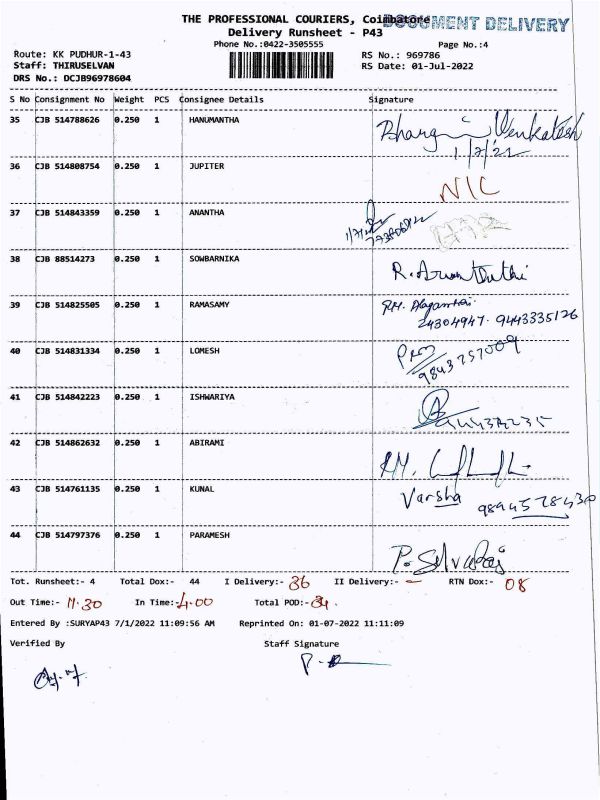 THE PROFESSIONAL COURIERS, Coimbatore DOCUMENT DELIVERY
Delivery Runsheet - P43
Phone No.:0422-3505555 Page No.:4
Route: KK PUDHUR-1-43 RS No.: 969786
Staff: THIRUSELVAN RS Date: 01-Jul-2022
DRS No.: DCJB96978604
S No Consignment No Weight PCS Consignee Details Signature
35 CJB 514788626 0.250 1 HANUMANTHA Venkatesh
1/7/22
36 CJB 514808754 0.250 1 JUPITER NIC
37 CJB 514843359 0.250 1 ANANTHA
38 CJB 88514273 0.250 1 SOWBARNIKA
39 CJB 514825505 0.250 1 RAMASAMY
24304947. 9443335126
40 CJB 514831334 0.250 1 LOMESH
9843757009
41 CJB 514842223 0.250 1 ISHWARIYA
42 CJB 514862632 0.250 1 ABIRAMI
43 CJB 514761135 0.250 1 KUNAL Varsha 9894578430
44 CJB 514797376 0.250 1 PARAMESH P. Selvaraj
Tot. Runsheet:- 4 Total Dox:- 44 I Delivery:- 36 II Delivery:- — RTN Dox:- 08
Out Time:- 11.30 In Time:- 4.00 Total POD:-
Entered By :SURYAP43 7/1/2022 11:09:56 AM Reprinted On: 01-07-2022 11:11:09
Verified By Staff Signature